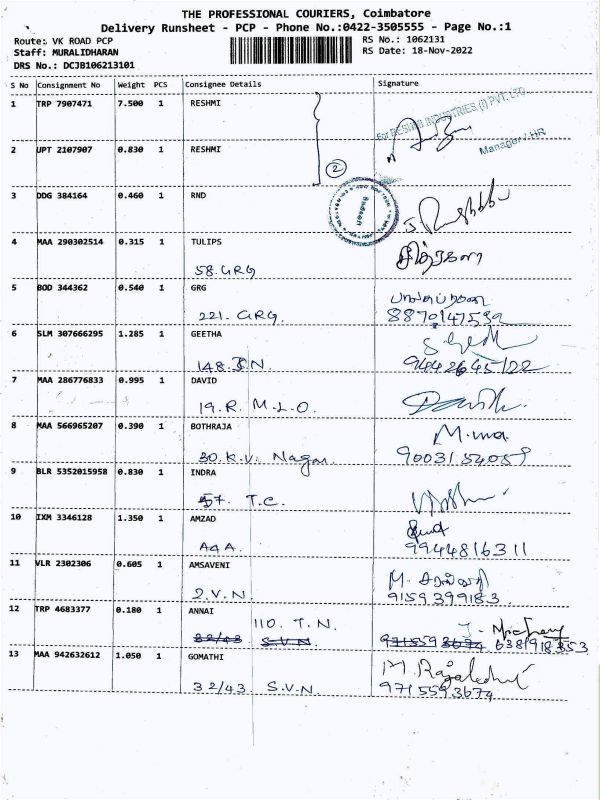 THE PROFESSIONAL COURIERS, Coimbatore
Delivery Runsheet - PCP - Phone No.:0422-3505555 - Page No.:1
Route: VK ROAD PCP RS No.: 1062131
Staff: MURALIDHARAN RS Date: 18-Nov-2022
DRS No.: DCJB106213101
S No Consignment No Weight PCS Consignee Details Signature
1 TRP 7907471 7.500 1 RESHMI
For RESHMI INDUSTRIES (I) PVT. LTD
Manager / HR
2 UPT 2107907 0.830 1 RESHMI
2
3 DDG 384164 0.460 1 RND
4 MAA 290302514 0.315 1 TULIPS
58. GRG
5 BOD 344362 0.540 1 GRG
221. GRG. 8870147532
6 SLM 307666295 1.285 1 GEETHA
148. S.N. 9442645122
7 MAA 286776833 0.995 1 DAVID
19. R. M. L. O.
8 MAA 566965207 0.390 1 BOTHRAJA
30. K.V. Nagar. 9003154059
9 BLR 5352015958 0.830 1 INDRA
57. T.C.
10 IXM 3346128 1.350 1 AMZAD
AQA. 9944816311
11 VLR 2302306 0.605 1 AMSAVENI
2. V. N. 9159399183
12 TRP 4683377 0.180 1 ANNAI
110. T. N.
32/43 S.V.N. 9715593674 6381918353
13 MAA 942632612 1.050 1 GOMATHI
32/43 S.V.N. 9715593674